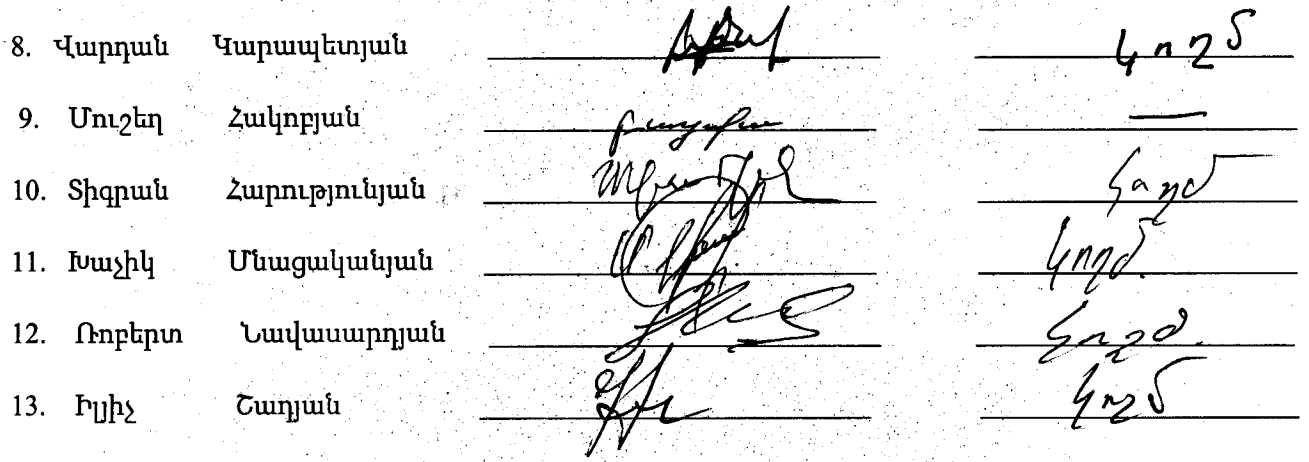 8. Վարդան Կարապետյան կողմ
9. Մուշեղ Հակոբյան —
10. Տիգրան Հարությունյան կողմ
11. Խաչիկ Մնացականյան կողմ.
12. Ռոբերտ Նավասարդյան կողմ.
13. Իլյիչ Շաղյան կողմ